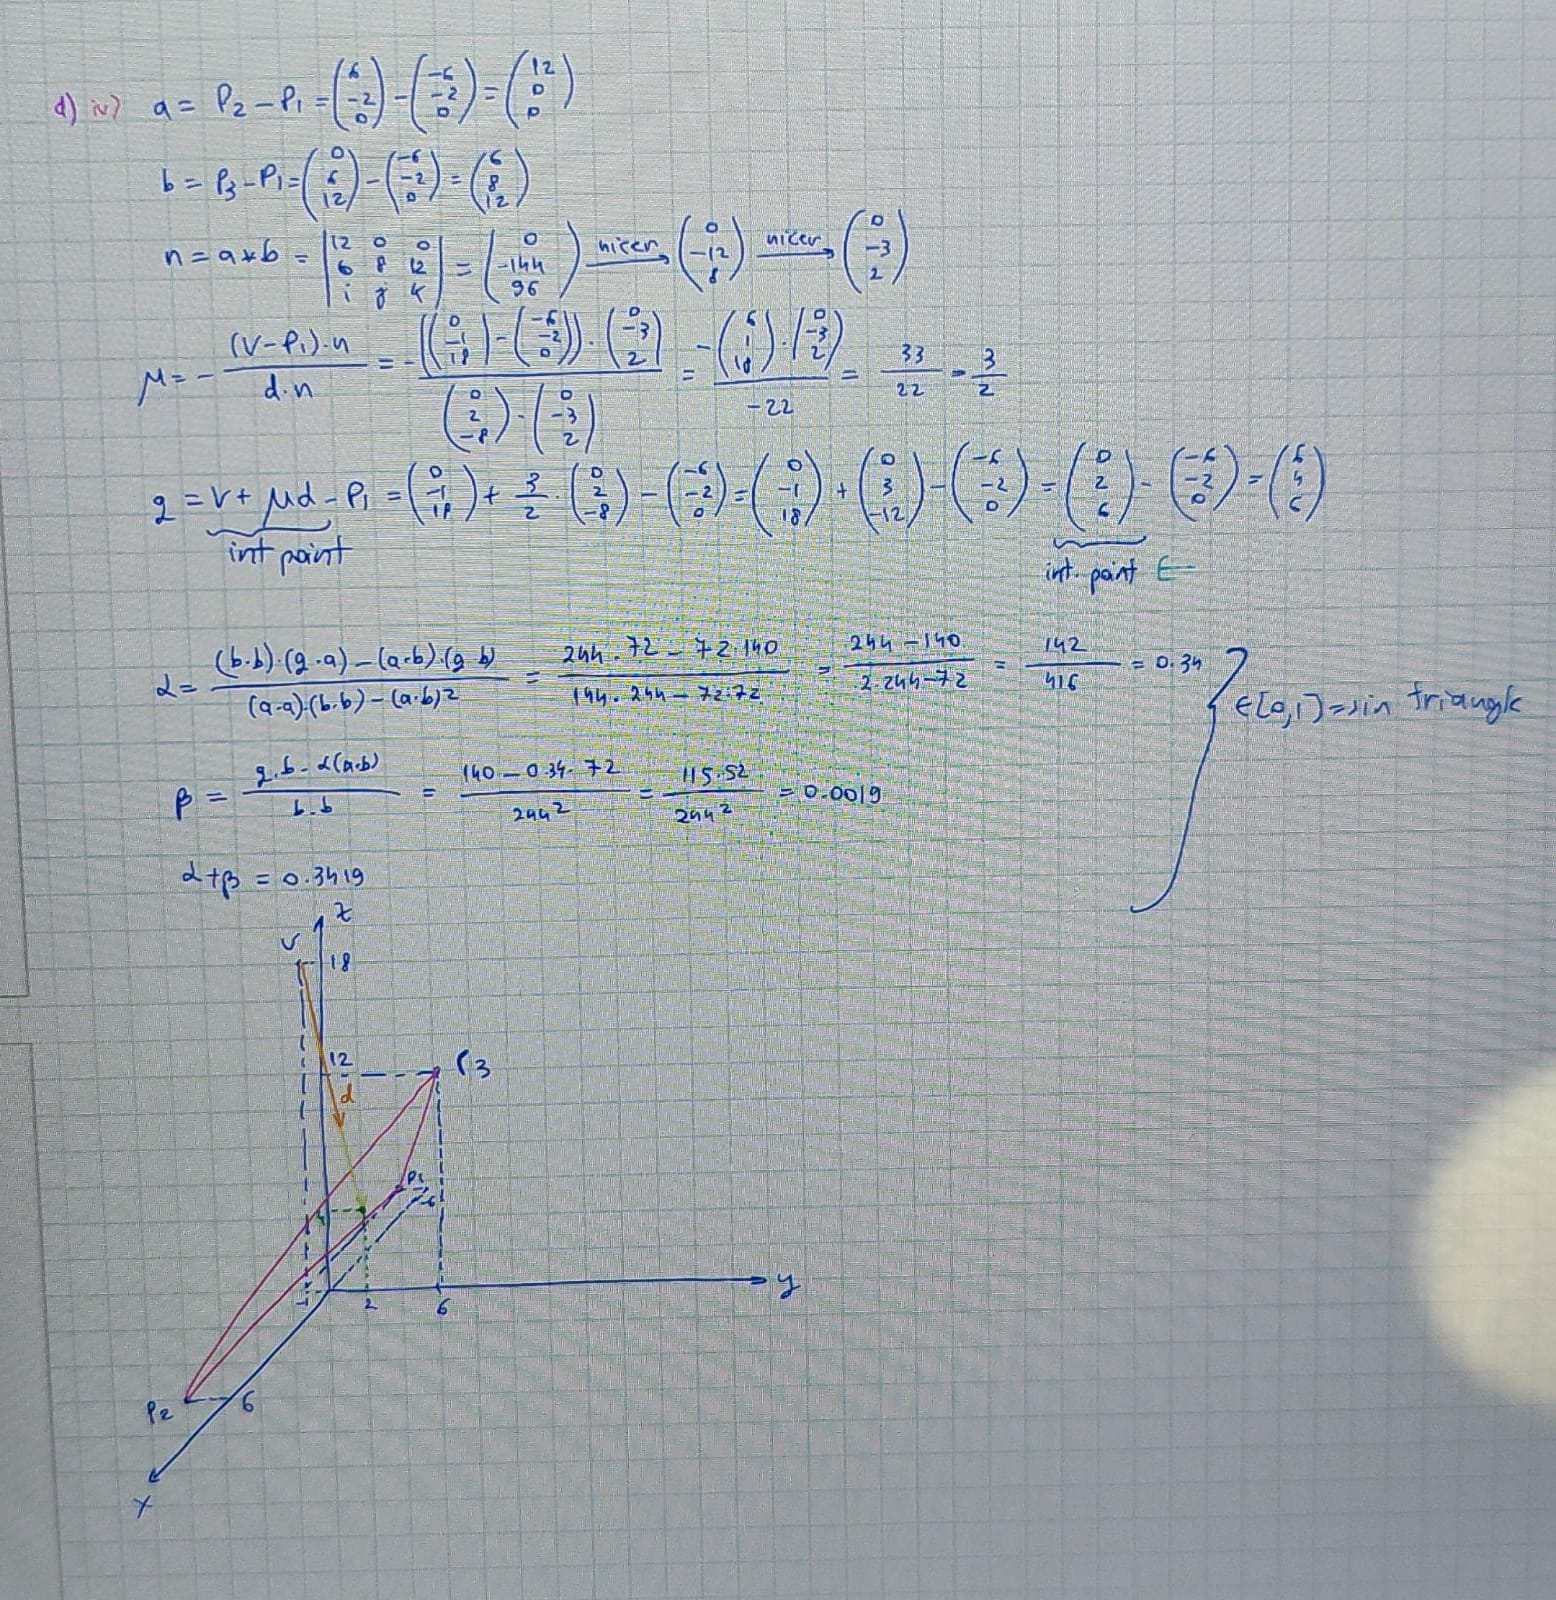 d) iv) a = P2 - P1 = (6 -2 0) - (-6 -2 0) = (12 0 0)
b = P3 - P1 = (0 6 12) - (-6 -2 0) = (6 8 12)
n = a * b = |12 0 0 6 8 12 i j k| = (0 -144 96) nicer → (0 -12 8) nicer → (0 -3 2)
μ = - (V - P1)·n / d·n = - ((0 -1 18) - (-6 -2 0)) · (0 -3 2) / (0 2 -8) · (0 -3 2) = - (6 1 18) · (0 -3 2) / -22 = 33/22 = 3/2
g = V + μd - P1 = (0 -1 18) + 3/2 · (0 2 -8) - (-6 -2 0) = (0 -1 18) + (0 3 -12) - (-6 -2 0) = (0 2 6) - (-6 -2 0) = (6 4 6)
int point
int. point ←
α = (b·b)·(g·a) - (a·b)·(g·b) / (a·a)·(b·b) - (a·b)2 = 244·72 - 72·140 / 144·244 - 72·72 = 244 - 140 / 2·244 - 72 = 142 / 416 = 0.34
∈[0,1] ⇒ in triangle
β = g·b - α(a·b) / b·b = 140 - 0.34·72 / 244² = 115.52 / 244² = 0.0019
α + β = 0.3419
z
V
18
12
P3
d
P1
-6
-1
2
6
y
P2
6
x